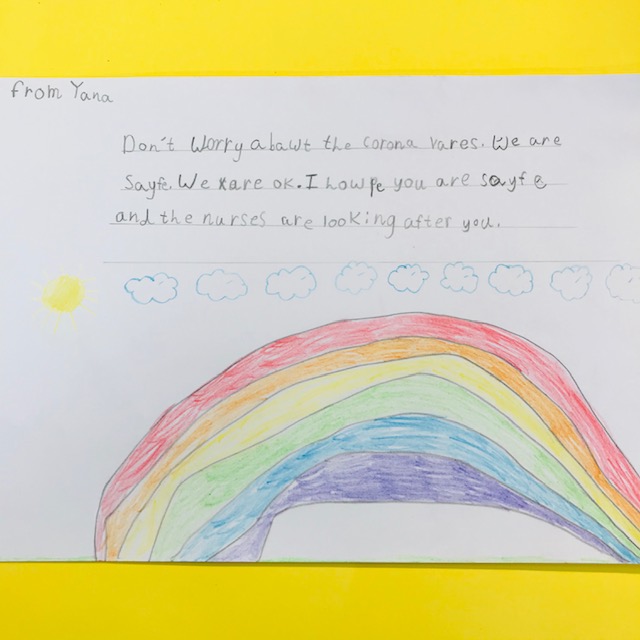 from Yana
Don't Worry abawt the corona vares. We are
Sayfe. We are ok. I howpe you are sayfe
and the nurses are looking after you.